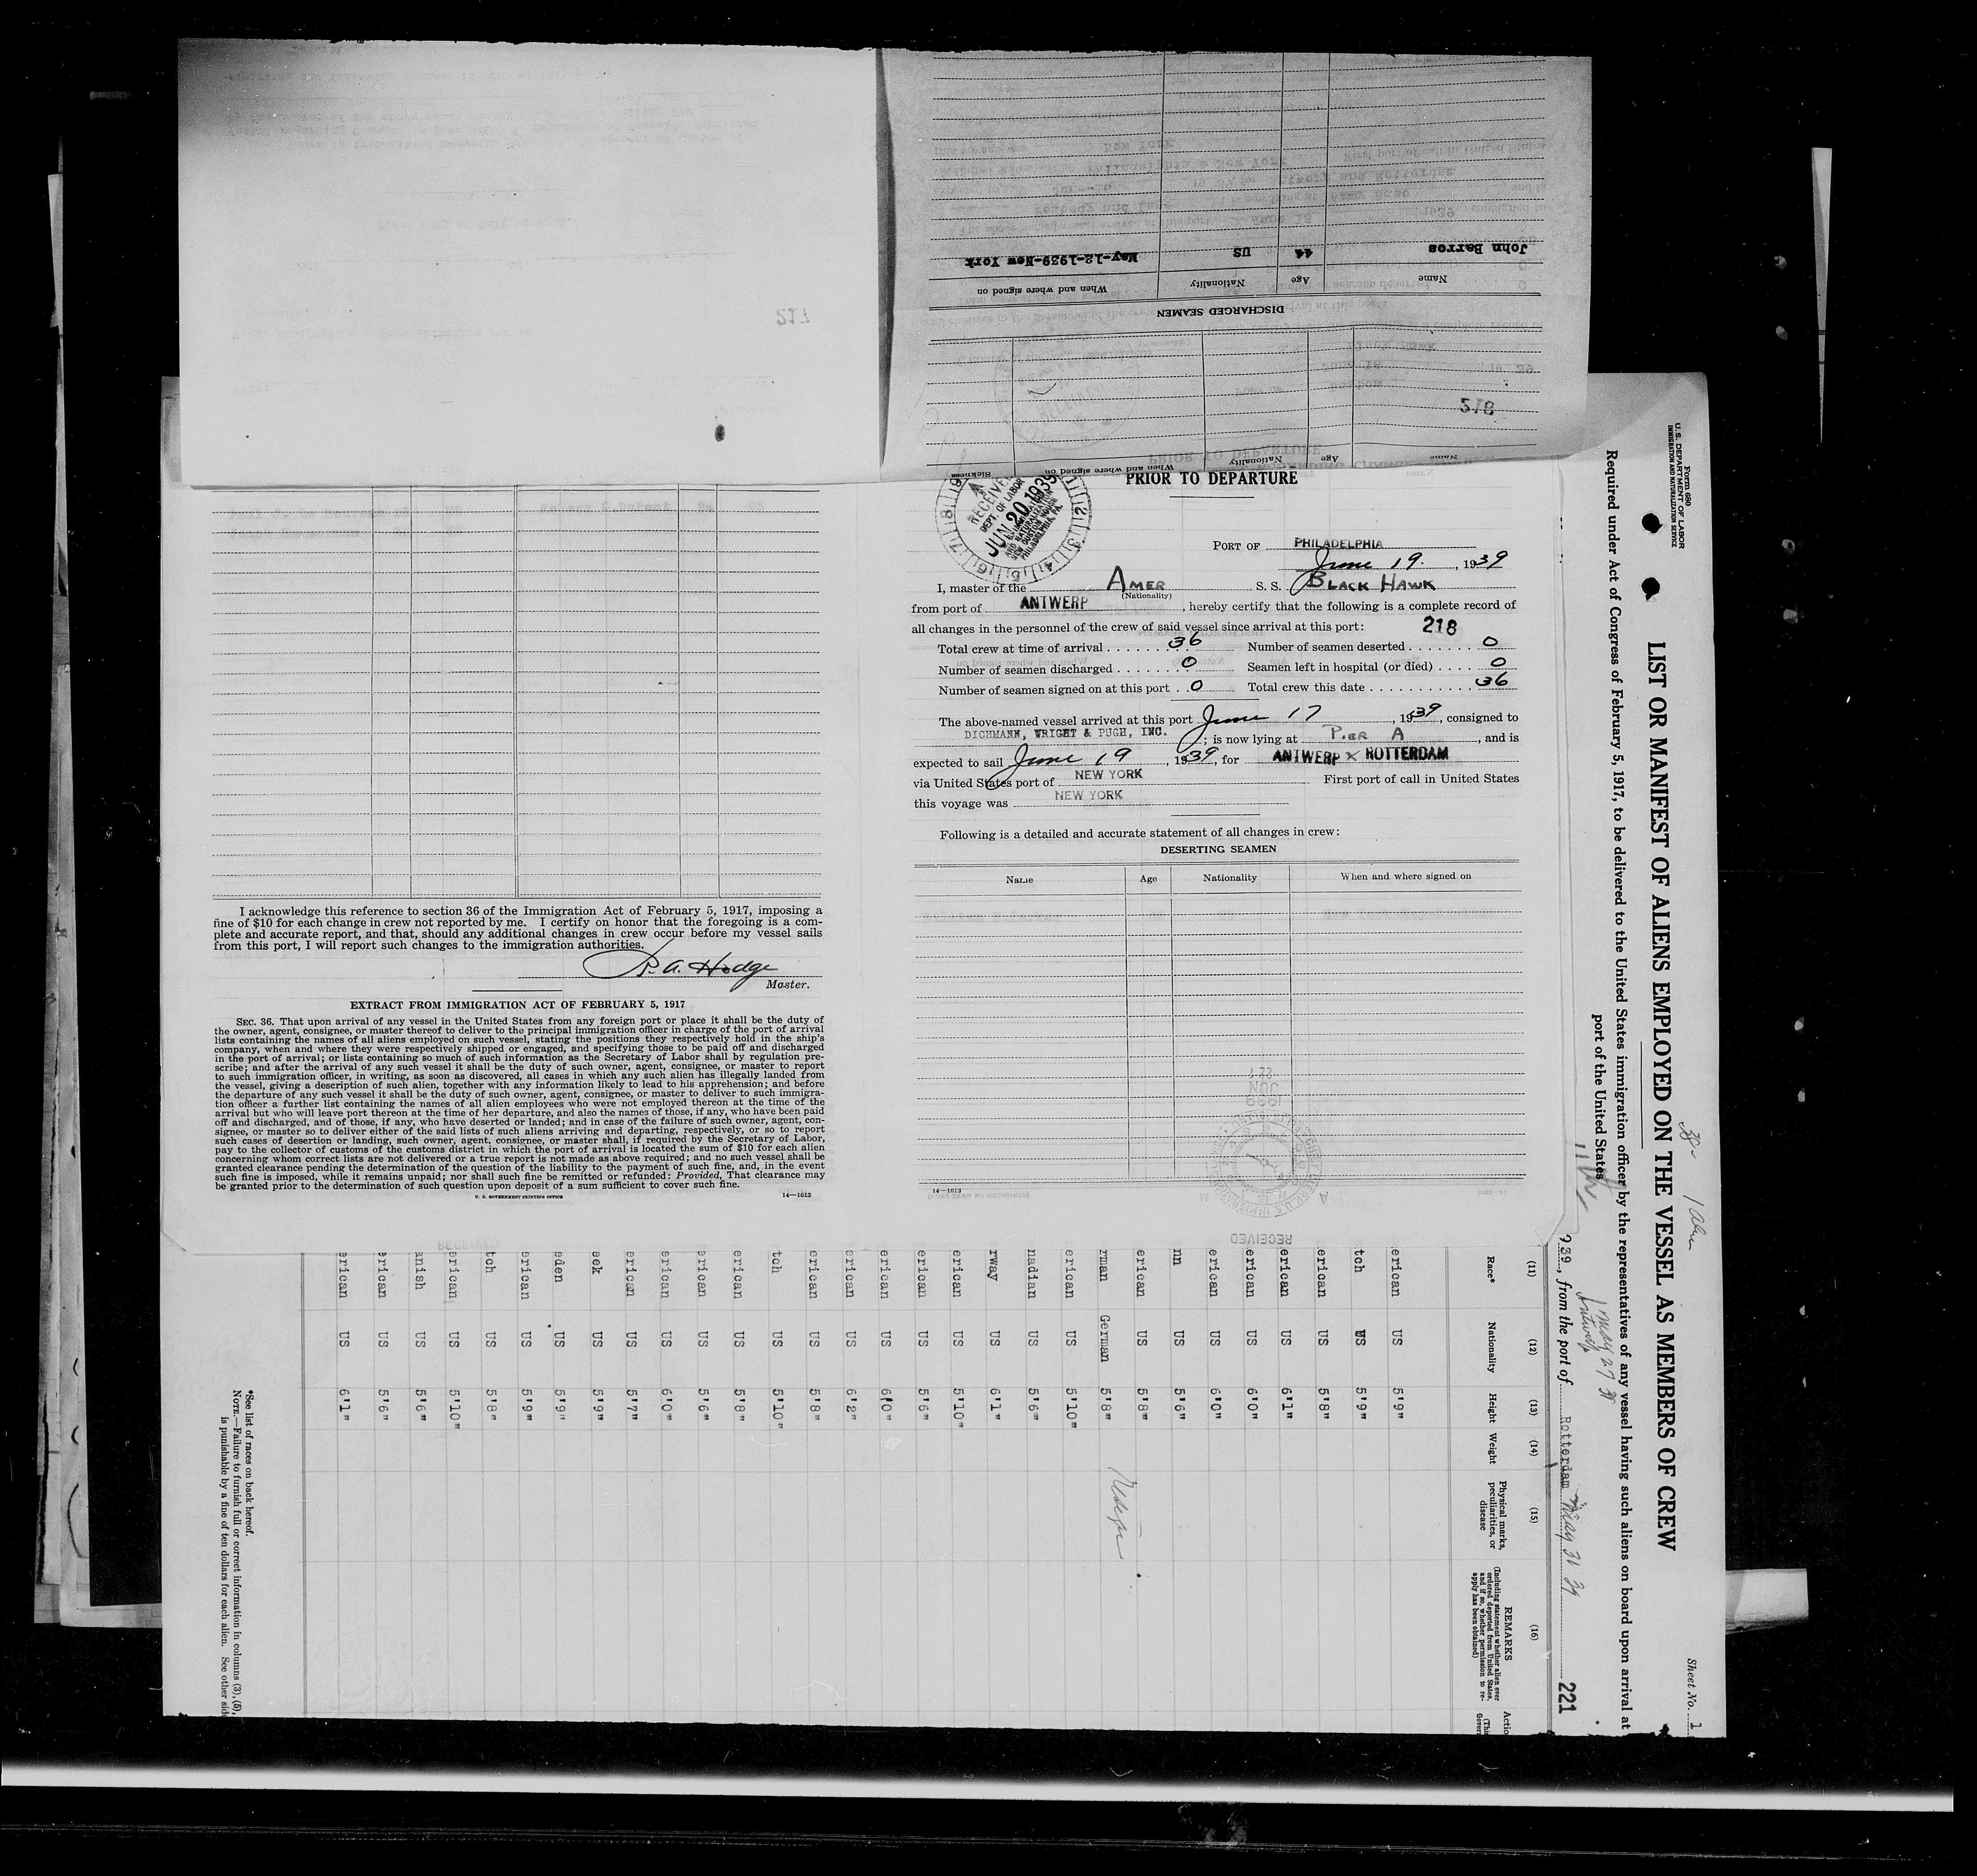 John Barros 44 US May-12-1939-New York
Name Age Nationality When and where signed on
DISCHARGED SEAMEN
217
218
Name Age Nationality When and where signed on Sickness
PRIOR TO DEPARTURE
RECEIVED
DEPT. OF LABOR
JUN 20 1939
IMMIGRATION
AND NATURALIZATION
NEW CUSTOM HOUSE
PHILADELPHIA, PA.
PORT OF PHILADELPHIA
June 19, 1939
I, master of the AMER S. S. BLACK HAWK
(Nationality)
from port of ANTWERP, hereby certify that the following is a complete record of
all changes in the personnel of the crew of said vessel since arrival at this port: 218
Total crew at time of arrival . . . . . . . 36 Number of seamen deserted . . . . . . . 0
Number of seamen discharged . . . . . . . 0 Seamen left in hospital (or died) . . . . 0
Number of seamen signed on at this port . . 0 Total crew this date . . . . . . . . . . . 36
The above-named vessel arrived at this port June 17, 1939, consigned to
DICHMANN, WRIGHT & PUGH, INC.; is now lying at PIER A, and is
expected to sail June 19, 1939, for ANTWERP X ROTTERDAM
via United States port of NEW YORK First port of call in United States
this voyage was NEW YORK
Following is a detailed and accurate statement of all changes in crew:
DESERTING SEAMEN
Name Age Nationality When and where signed on
14—1613
I acknowledge this reference to section 36 of the Immigration Act of February 5, 1917, imposing a
fine of $10 for each change in crew not reported by me. I certify on honor that the foregoing is a com-
plete and accurate report, and that, should any additional changes in crew occur before my vessel sails
from this port, I will report such changes to the immigration authorities.
R. A. Hodge
Master.
EXTRACT FROM IMMIGRATION ACT OF FEBRUARY 5, 1917
SEC. 36. That upon arrival of any vessel in the United States from any foreign port or place it shall be the duty of
the owner, agent, consignee, or master thereof to deliver to the principal immigration officer in charge of the port of arrival
lists containing the names of all aliens employed on such vessel, stating the positions they respectively hold in the ship's
company, when and where they were respectively shipped or engaged, and specifying those to be paid off and discharged
in the port of arrival; or lists containing so much of such information as the Secretary of Labor shall by regulation pre-
scribe; and after the arrival of any such vessel it shall be the duty of such owner, agent, consignee, or master to report
to such immigration officer, in writing, as soon as discovered, all cases in which any such alien has illegally landed from
the vessel, giving a description of such alien, together with any information likely to lead to his apprehension; and before
the departure of any such vessel it shall be the duty of such owner, agent, consignee, or master to deliver to such immigra-
tion officer a further list containing the names of all alien employees who were not employed thereon at the time of the
arrival but who will leave port thereon at the time of her departure, and also the names of those, if any, who have been paid
off and discharged, and of those, if any, who have deserted or landed; and in case of the failure of such owner, agent, con-
signee, or master so to deliver either of the said lists of such aliens arriving and departing, respectively, or so to report
such cases of desertion or landing, such owner, agent, consignee, or master shall, if required by the Secretary of Labor,
pay to the collector of customs of the customs district in which the port of arrival is located the sum of $10 for each alien
concerning whom correct lists are not delivered or a true report is not made as above required; and no such vessel shall be
granted clearance pending the determination of the question of the liability to the payment of such fine, and, in the event
such fine is imposed, while it remains unpaid; nor shall such fine be remitted or refunded: Provided, That clearance may
be granted prior to the determination of such question upon deposit of a sum sufficient to cover such fine.
U. S. GOVERNMENT PRINTING OFFICE 14—1613
Form 680
U. S. DEPARTMENT OF LABOR
IMMIGRATION AND NATURALIZATION SERVICE
Sheet No. 1
LIST OR MANIFEST OF ALIENS EMPLOYED ON THE VESSEL AS MEMBERS OF CREW
Required under Act of Congress of February 5, 1917, to be delivered to the United States immigration officer by the representatives of any vessel having such aliens on board upon arrival at
port of the United States
Antwerp May 27 39
939, from the port of Rotterdam May 31 39 221
(11) (12) (13) (14) (15) (16)
Race* Nationality Height Weight Physical marks, peculiarities, or disease REMARKS
(Including statement whether alien ever ordered deported from United States, and if so, whether permission to re-apply has been obtained)
erican US 5'9"
tch US 5'9"
erican US 5'8"
erican US 6'1"
erican US 6'0"
erican US 6'0"
nn US 5'6"
erican US 5'8"
rman German 5'8"
erican US 5'10"
nadian US 5'6"
rway US 6'1"
erican US 5'10"
erican US 5'6"
erican US 6'0"
erican US 6'2"
erican US 5'8"
tch US 5'10"
erican US 5'8"
erican US 5'6"
erican US 6'0"
erican US 5'7"
eek US 5'9"
eden US 5'9"
erican US 5'9"
tch US 5'8"
erican US 5'10"
anish US 5'6"
erican US 5'6"
erican US 6'1"
*See list of races on back hereof.
NOTE.—Failure to furnish full or correct information in columns (3), (5),
is punishable by a fine of ten dollars for each alien. See other side